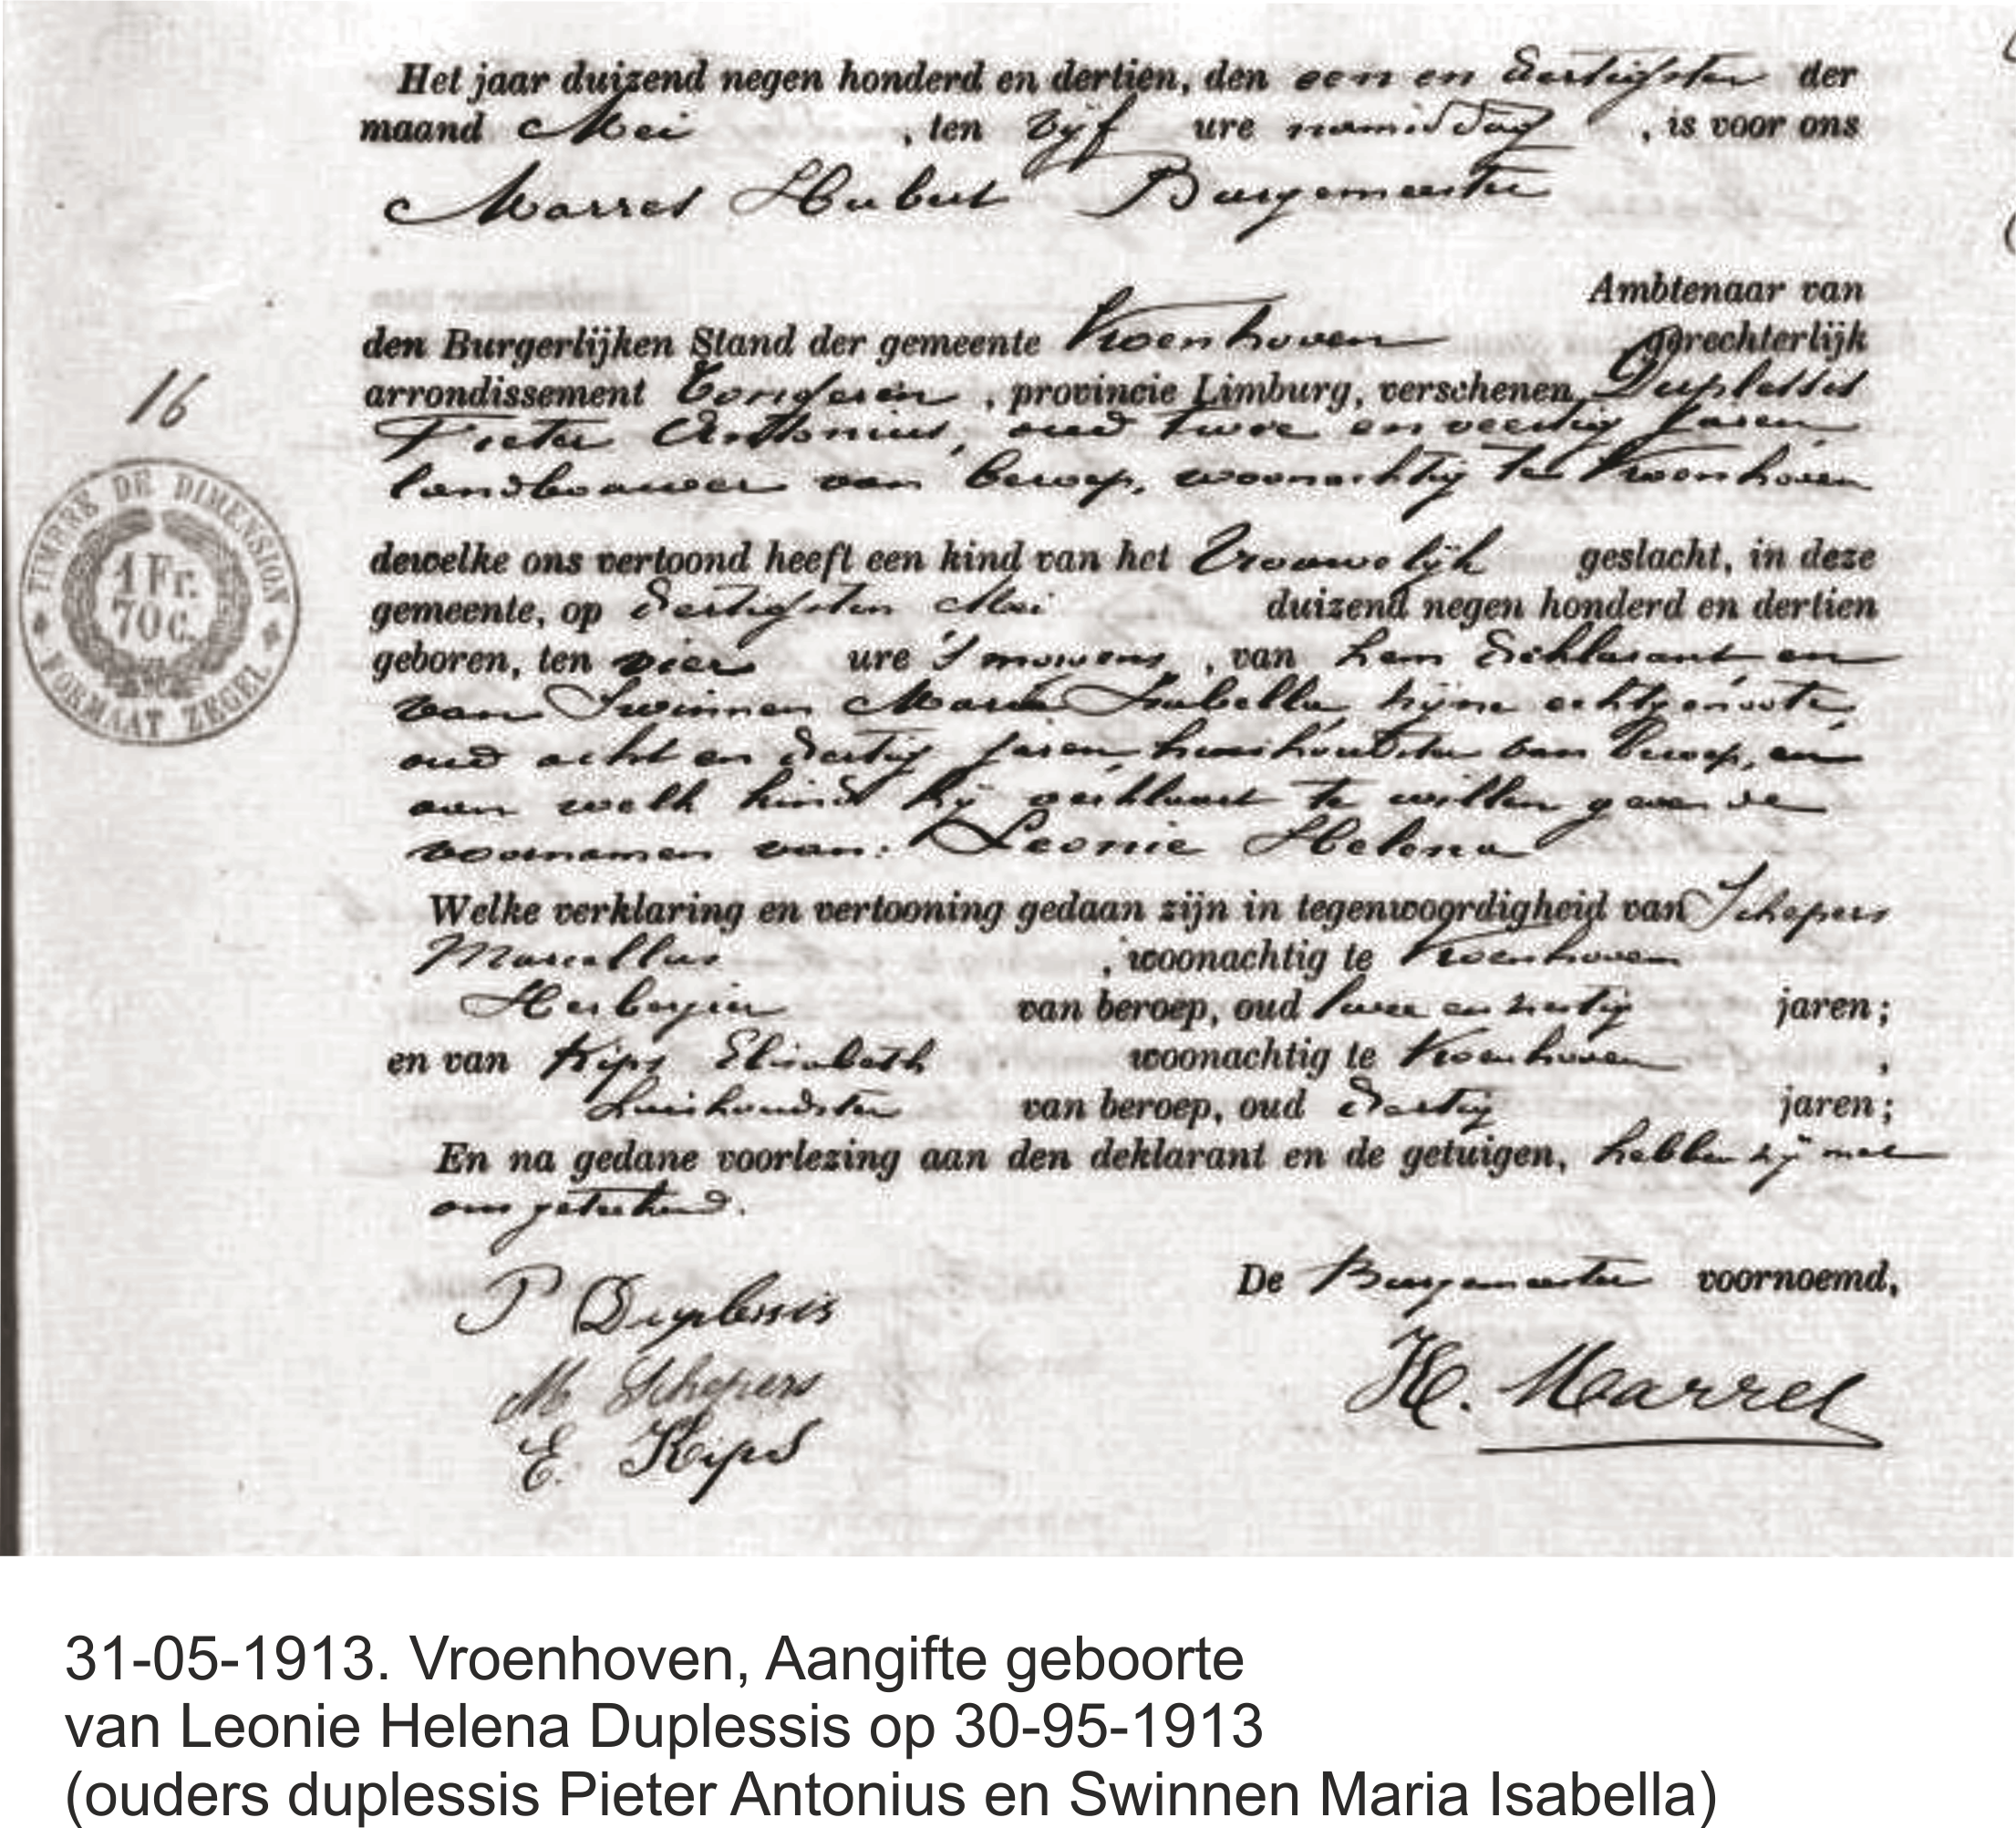 Het jaar duizend negen honderd en dertien, den een en dertigsten der
maand Mei , ten vijf ure namiddag , is voor ons
Marres Hubert Burgemeester
Ambtenaar van
den Burgerlijken Stand der gemeente Vroenhoven gerechterlijk
arrondissement Tongeren , provincie Limburg, verschenen Duplessis
Pieter Antonius, oud twee en veertig jaren,
landbouwer van beroep, woonachtig te Vroenhoven
dewelke ons vertoond heeft een kind van het Vrouwelijk geslacht, in deze
gemeente, op dertigsten Mei duizend negen honderd en dertien
geboren, ten vier ure 's morgens , van hem deklarant en
van Swinnen Maria Isabella zijne echtgenoote,
oud acht en dertig jaren, huishoudster van beroep, en
aan welk kind hij verklaart te willen geven de
voornamen van: Leonie Helena
Welke verklaring en vertooning gedaan zijn in tegenwoordigheid van Schepers
Marcellus , woonachtig te Vroenhoven
Herbergier van beroep, oud twee en jaren;
en van Kips Elisabeth woonachtig te Vroenhoven ,
huishoudster van beroep, oud dertig jaren;
En na gedane voorlezing aan den deklarant en de getuigen, hebben zij met
ons geteekend.
De Burgemeester voornoemd,
P Duplessis
M Schepers
E. Kips
H. Marres
16
TIMBRE DE DIMENSION
1 Fr.
70 c.
FORMAAT ZEGEL
31-05-1913. Vroenhoven, Aangifte geboorte
van Leonie Helena Duplessis op 30-95-1913
(ouders duplessis Pieter Antonius en Swinnen Maria Isabella)